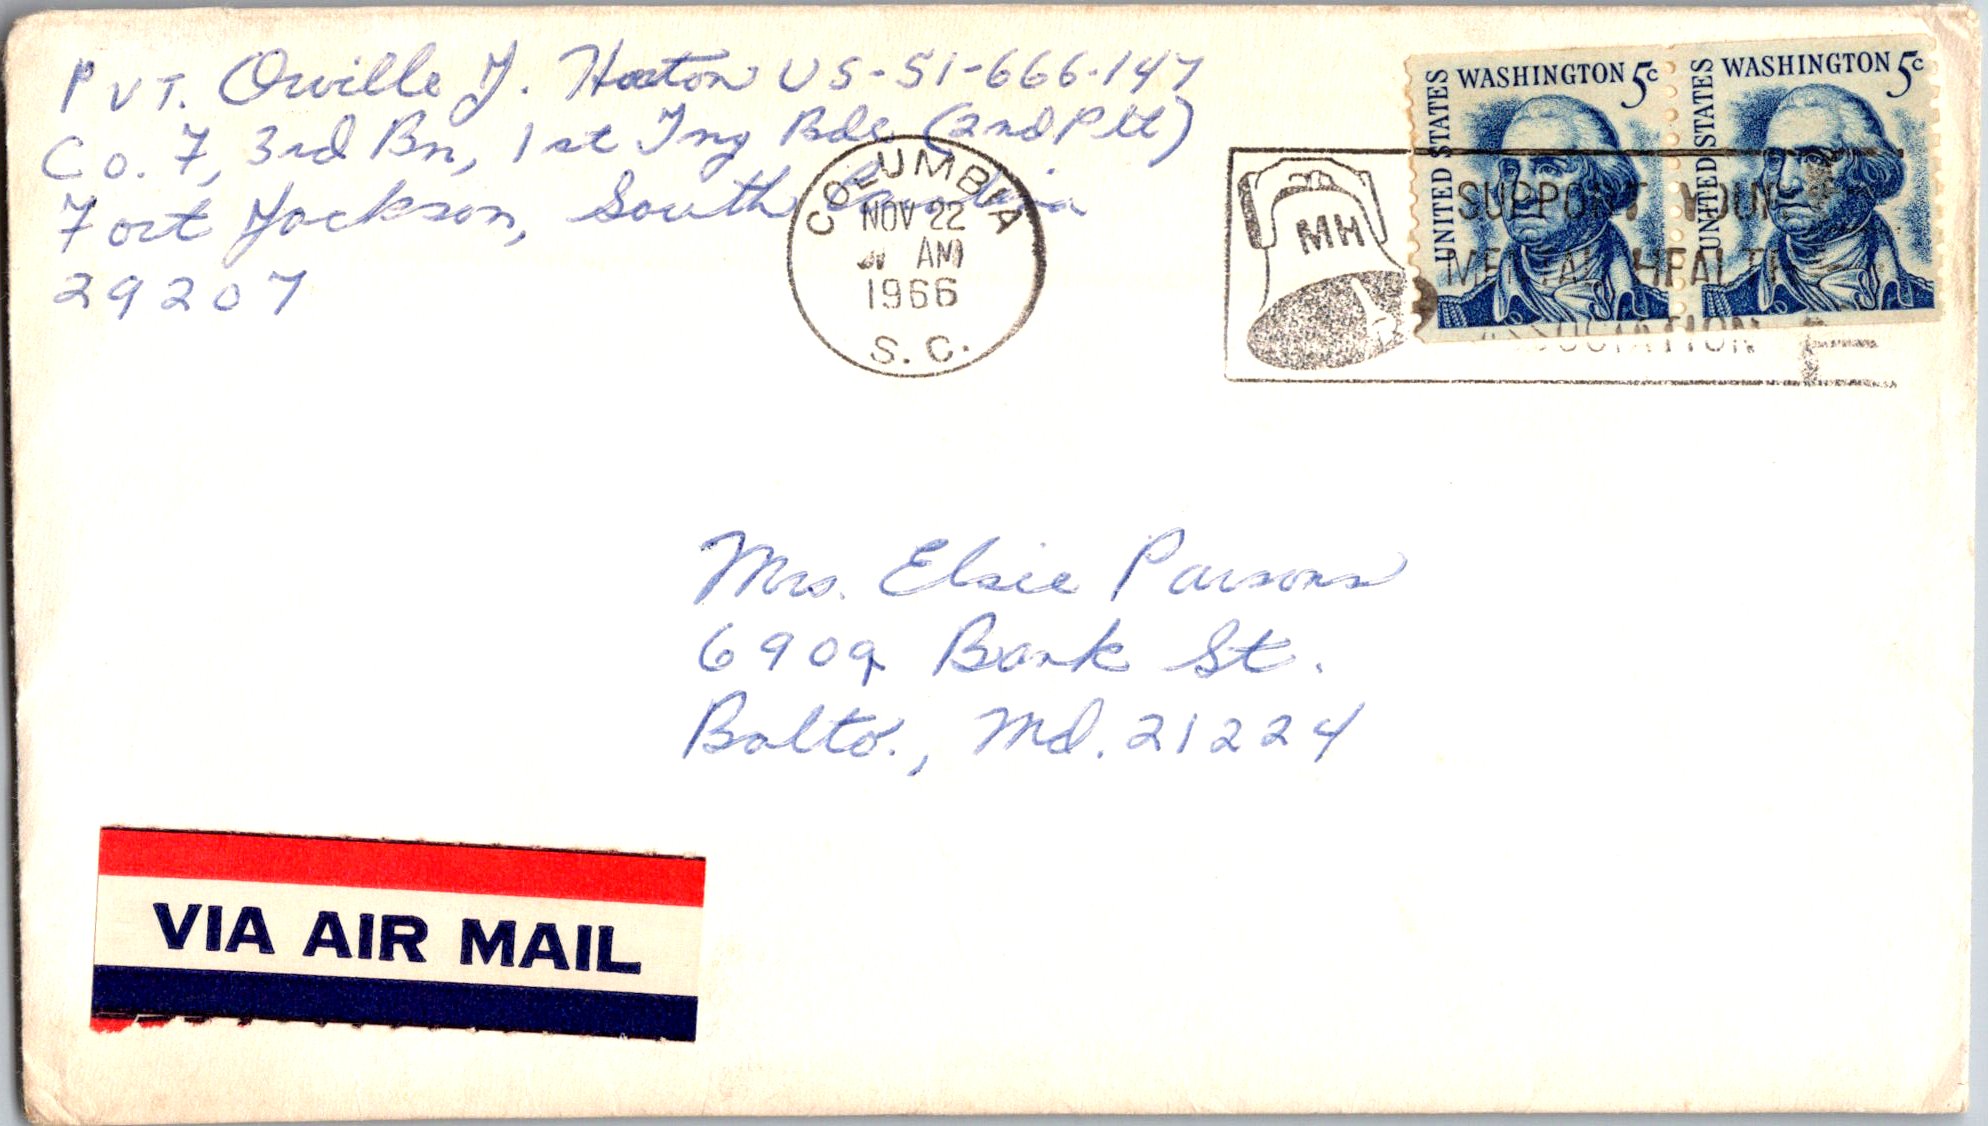 PVT. Orville J. Hoxton US-51-666-147
Co. F, 3rd Bn, 1st Tng Bde (2nd Plt)
Fort Jackson, South Carolina
29207
COLUMBIA
NOV 22
AM
1966
S. C.
MH
SUPPORT YOUR
MENTAL HEALTH
ASSOCIATION
UNITED STATES
WASHINGTON 5c
UNITED STATES
WASHINGTON 5c
Mrs. Elsie Parsons
6909 Bank St.
Balto., Md. 21224
VIA AIR MAIL